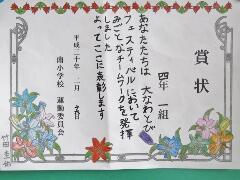 賞状
四年 一組
あなたたちは 大なわとび
フェスティバルにおいて
みごとなチームワークを発揮
しました
よってここに表彰します
平成二十年 二月
南小学校 運動委員会